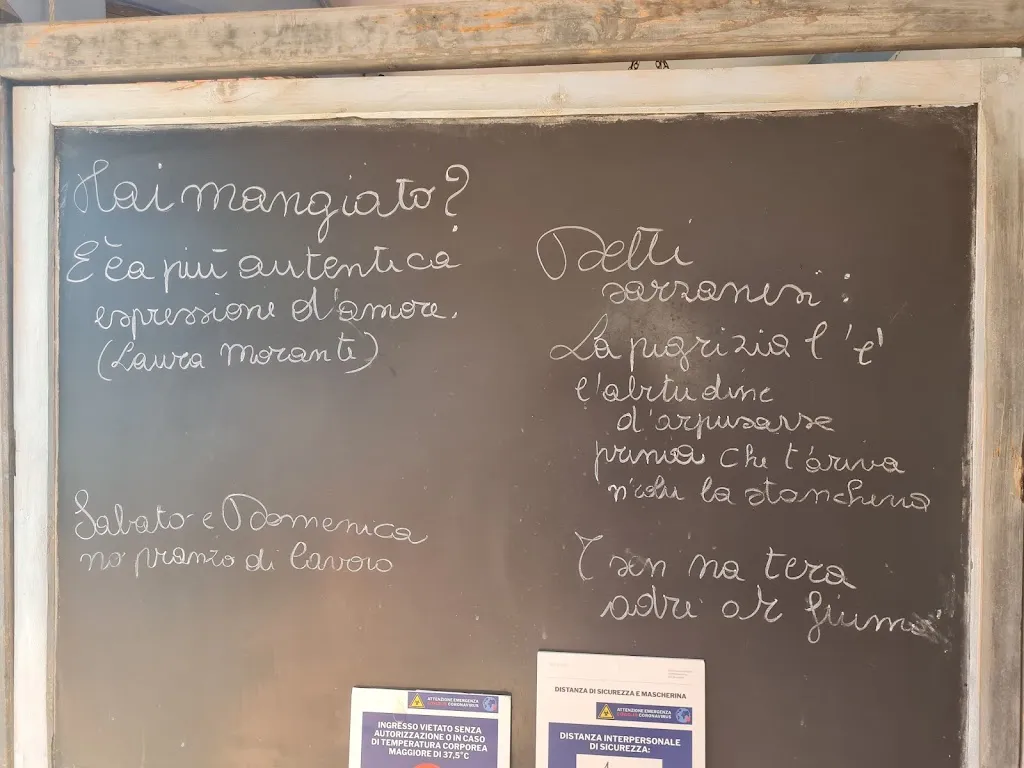 Hai mangiato?
E' èa più autentica
espressione d'amore.
(Laura Morante)
Sabato e Domenica
no pranzo di lavoro
Detti
sarzanesi:
La pigrizia l'è'
l'abitudine
d'arpusarse
prima che t'ariva
la stancheza
sen na tera
adre ar fiume
ATTENZIONE EMERGENZA
CORONAVIRUS
INGRESSO VIETATO SENZA
AUTORIZZAZIONE O IN CASO
DI TEMPERATURA CORPOREA
MAGGIORE DI 37,5°C
DISTANZA DI SICUREZZA E MASCHERINA
ATTENZIONE EMERGENZA
CORONAVIRUS
DISTANZA INTERPERSONALE
DI SICUREZZA: